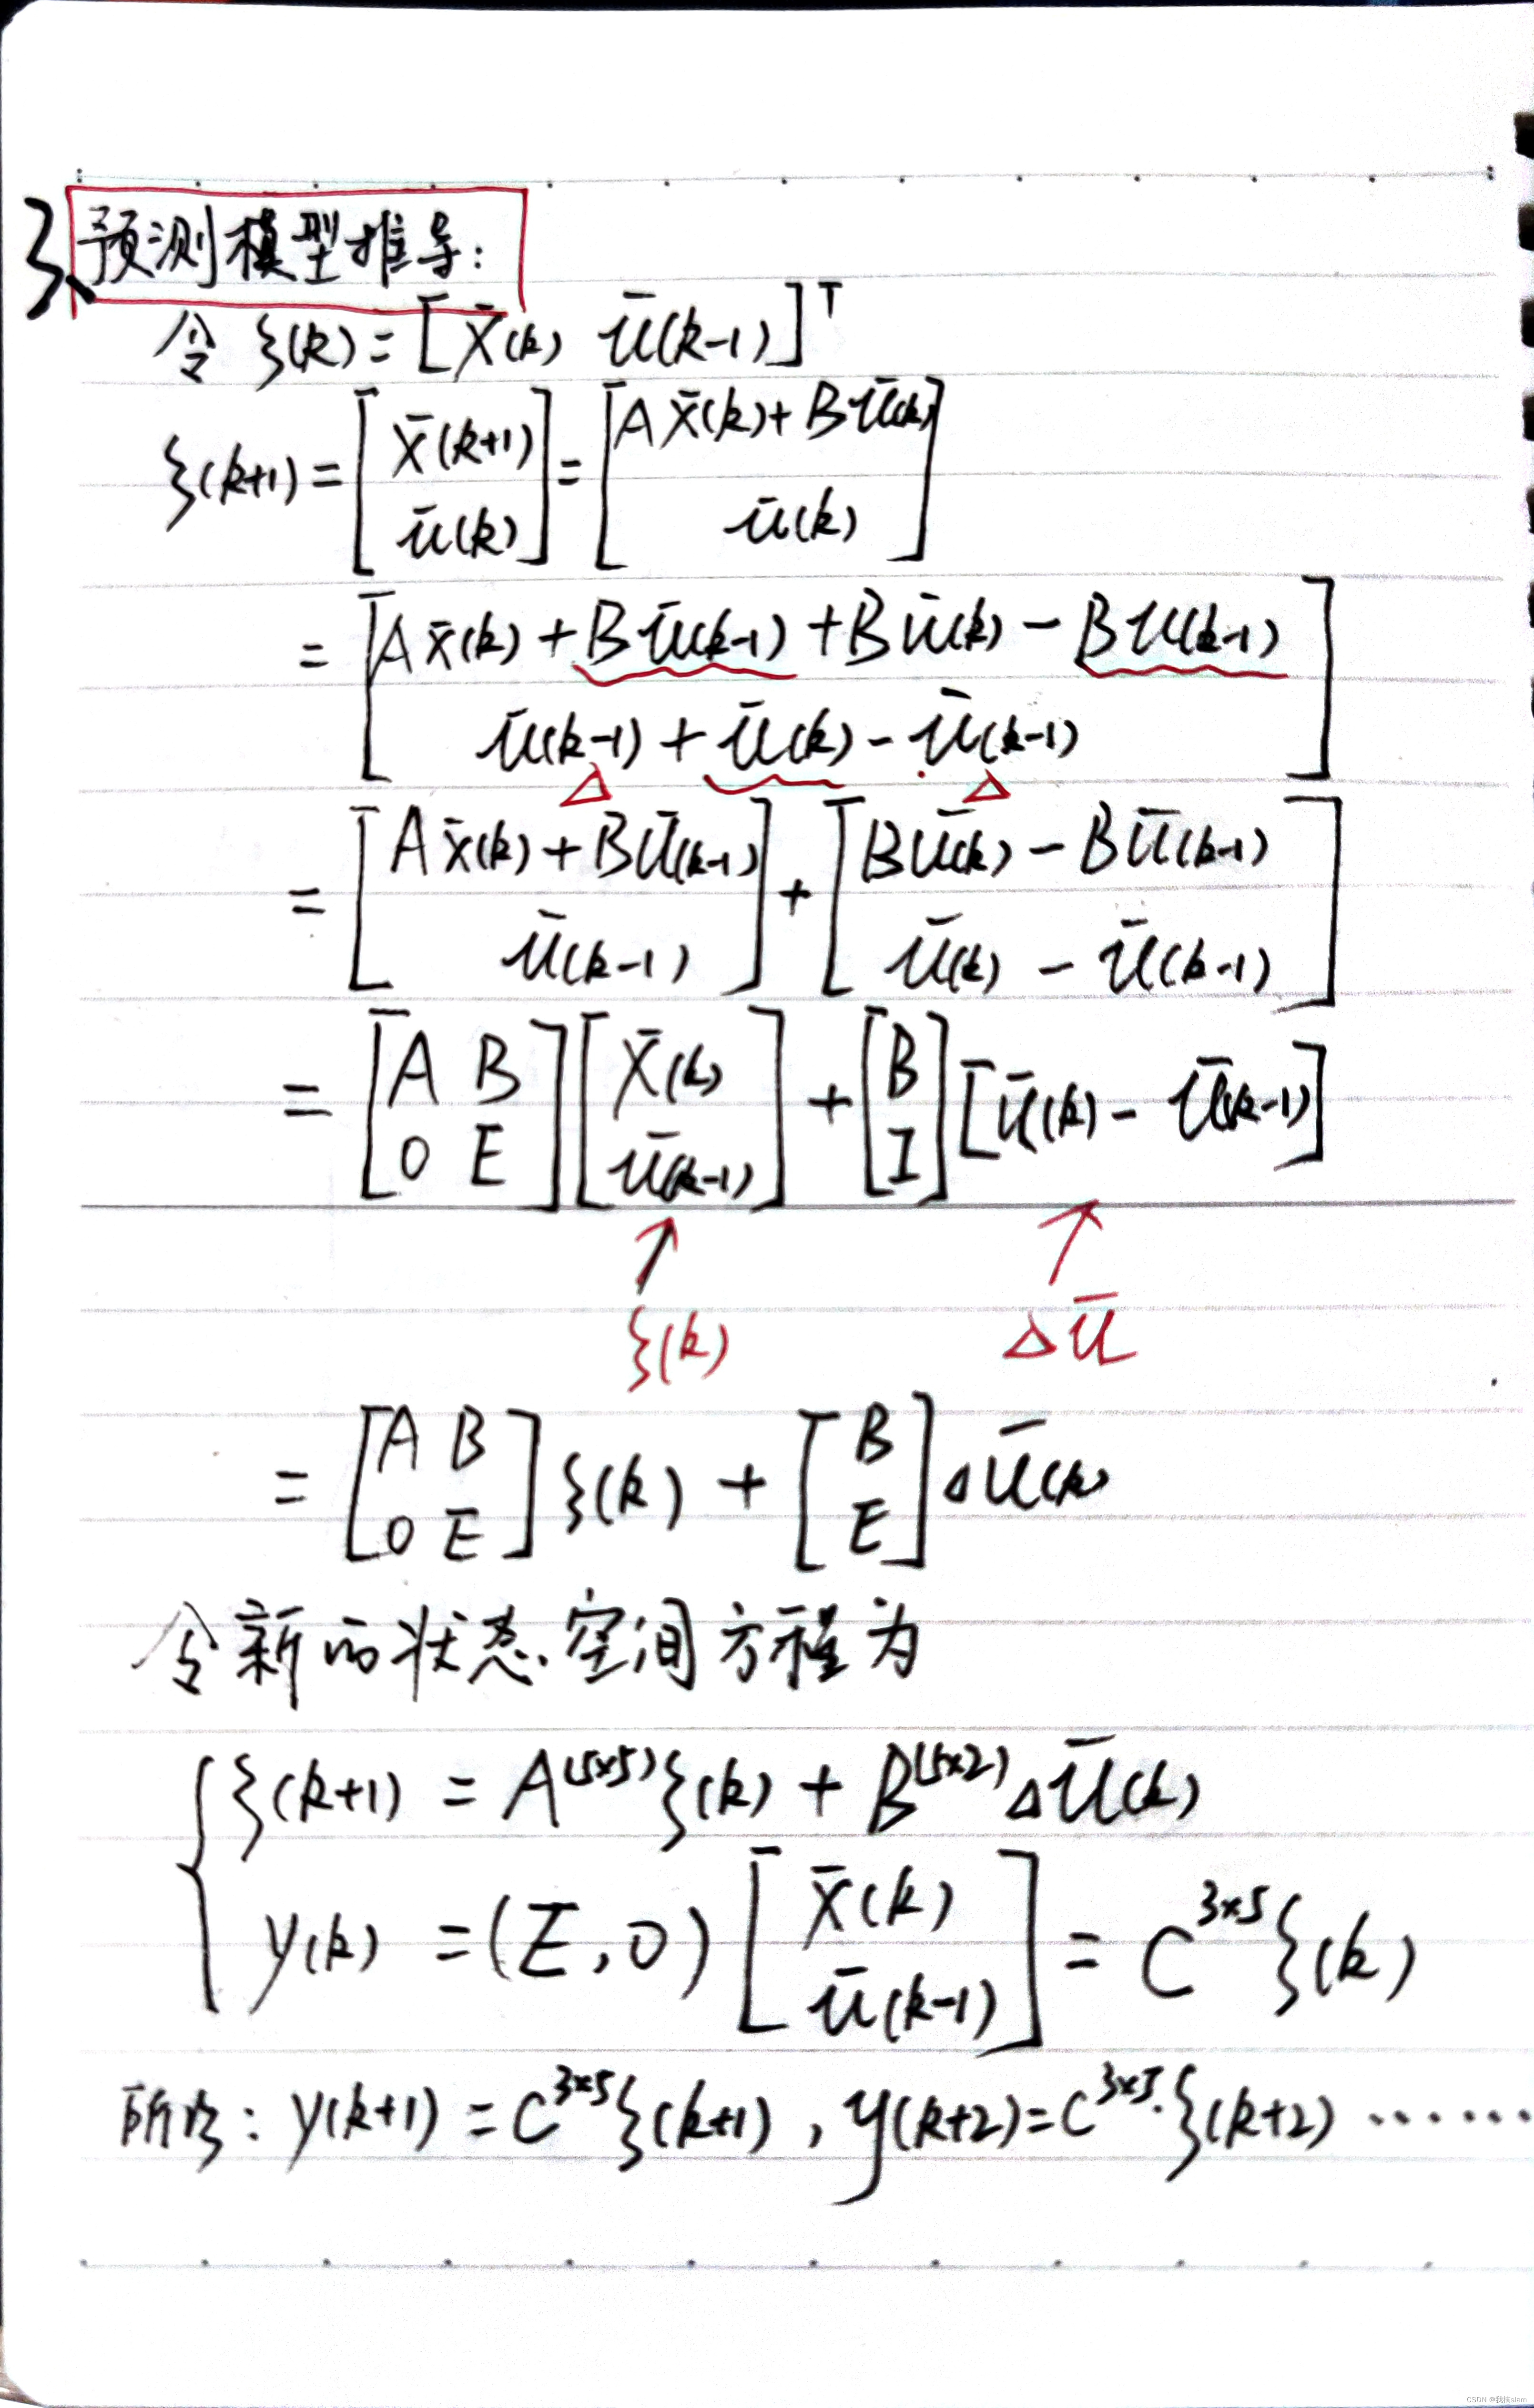 3、预测模型推导：
令 ξ(k) = [x̄(k) ū(k-1)]ᵀ
ξ(k+1) = [x̄(k+1); ū(k)] = [Ax̄(k)+Bū(k); ū(k)]
= [Ax̄(k) + Bū(k-1) + Bū(k) - Bu(k-1); ū(k-1) + ū(k) - ū(k-1)]
△ △
= [Ax̄(k) + Bū(k-1); ū(k-1)] + [Bū(k) - Bū(k-1); ū(k) - ū(k-1)]
= [A B; 0 E] [x̄(k); ū(k-1)] + [B; I] [ū(k) - ū(k-1)]
↑ ↑
ξ(k) Δū
= [A B; 0 E] ξ(k) + [B; E] Δū(k)
令新的状态空间方程为
{ ξ(k+1) = A⁽⁵ˣ⁵⁾ ξ(k) + B⁽⁵ˣ²⁾ Δū(k)
y(k) = (E, 0) [x̄(k); ū(k-1)] = C³ˣ⁵ ξ(k)
所以：y(k+1) = C³ˣ⁵ ξ(k+1) , y(k+2) = C³ˣ⁵·ξ(k+2) ······
CSDN @我搞slam